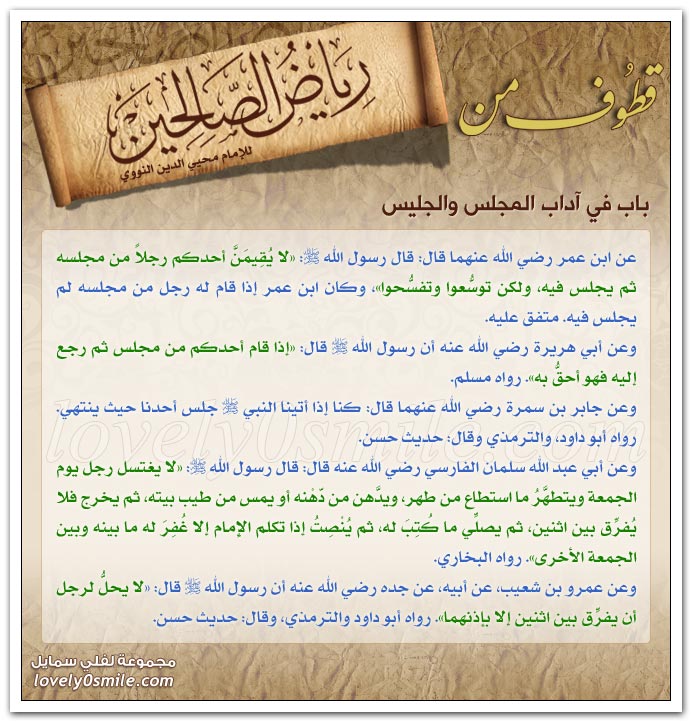 قطوف من
رياض الصالحين
للإمام محيي الدين النووي
باب في آداب المجلس والجليس
عن ابن عمر رضي الله عنهما قال: قال رسول الله ﷺ: «لا يُقِيمَنَّ أحدكم رجلاً من مجلسه
ثم يجلس فيه، ولكن توسَّعوا وتفسَّحوا»، وكان ابن عمر إذا قام له رجل من مجلسه لم
يجلس فيه. متفق عليه.
وعن أبي هريرة رضي الله عنه أن رسول الله ﷺ قال: «إذا قام أحدكم من مجلس ثم رجع
إليه فهو أحقُّ به». رواه مسلم.
وعن جابر بن سمرة رضي الله عنهما قال: كنا إذا أتينا النبي ﷺ جلس أحدنا حيث ينتهي.
رواه أبو داود، والترمذي وقال: حديث حسن.
وعن أبي عبد الله سلمان الفارسي رضي الله عنه قال: قال رسول الله ﷺ: «لا يغتسل رجل يوم
الجمعة ويتطهَّرُ ما استطاع من طهر، ويدَّهن من دُهْنه أو يمس من طيب بيته، ثم يخرج فلا
يُفرِّق بين اثنين، ثم يصلِّي ما كُتِبَ له، ثم يُنْصِتُ إذا تكلم الإمام إلا غُفِرَ له ما بينه وبين
الجمعة الأخرى». رواه البخاري.
وعن عمرو بن شعيب، عن أبيه، عن جده رضي الله عنه أن رسول الله ﷺ قال: «لا يحلُّ لرجل
أن يفرِّق بين اثنين إلا بإذنهما». رواه أبو داود والترمذي، وقال: حديث حسن.
lovely0smile.com
مجموعة لفلي سمايل
lovely0smile.com